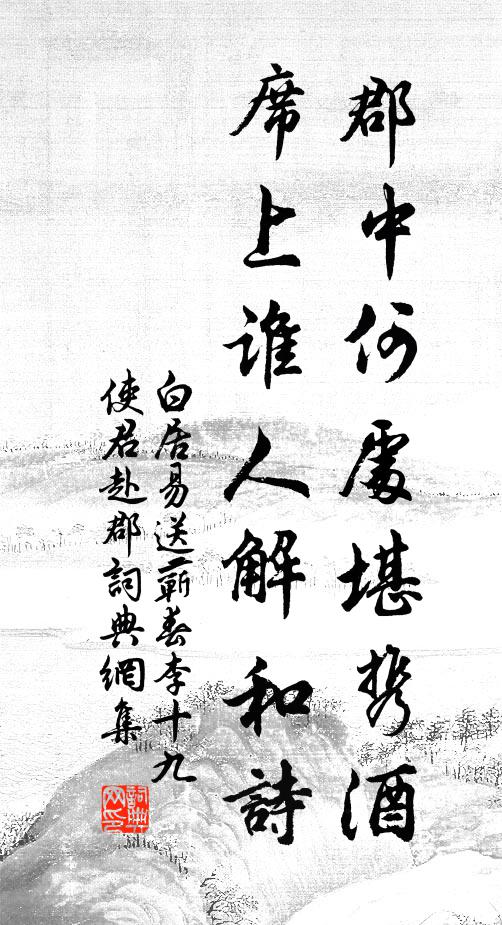 郡中何處堪携酒
席上誰人解和詩
白居易送蘄春李十九
使君赴郡詞典網集
詞典
网印